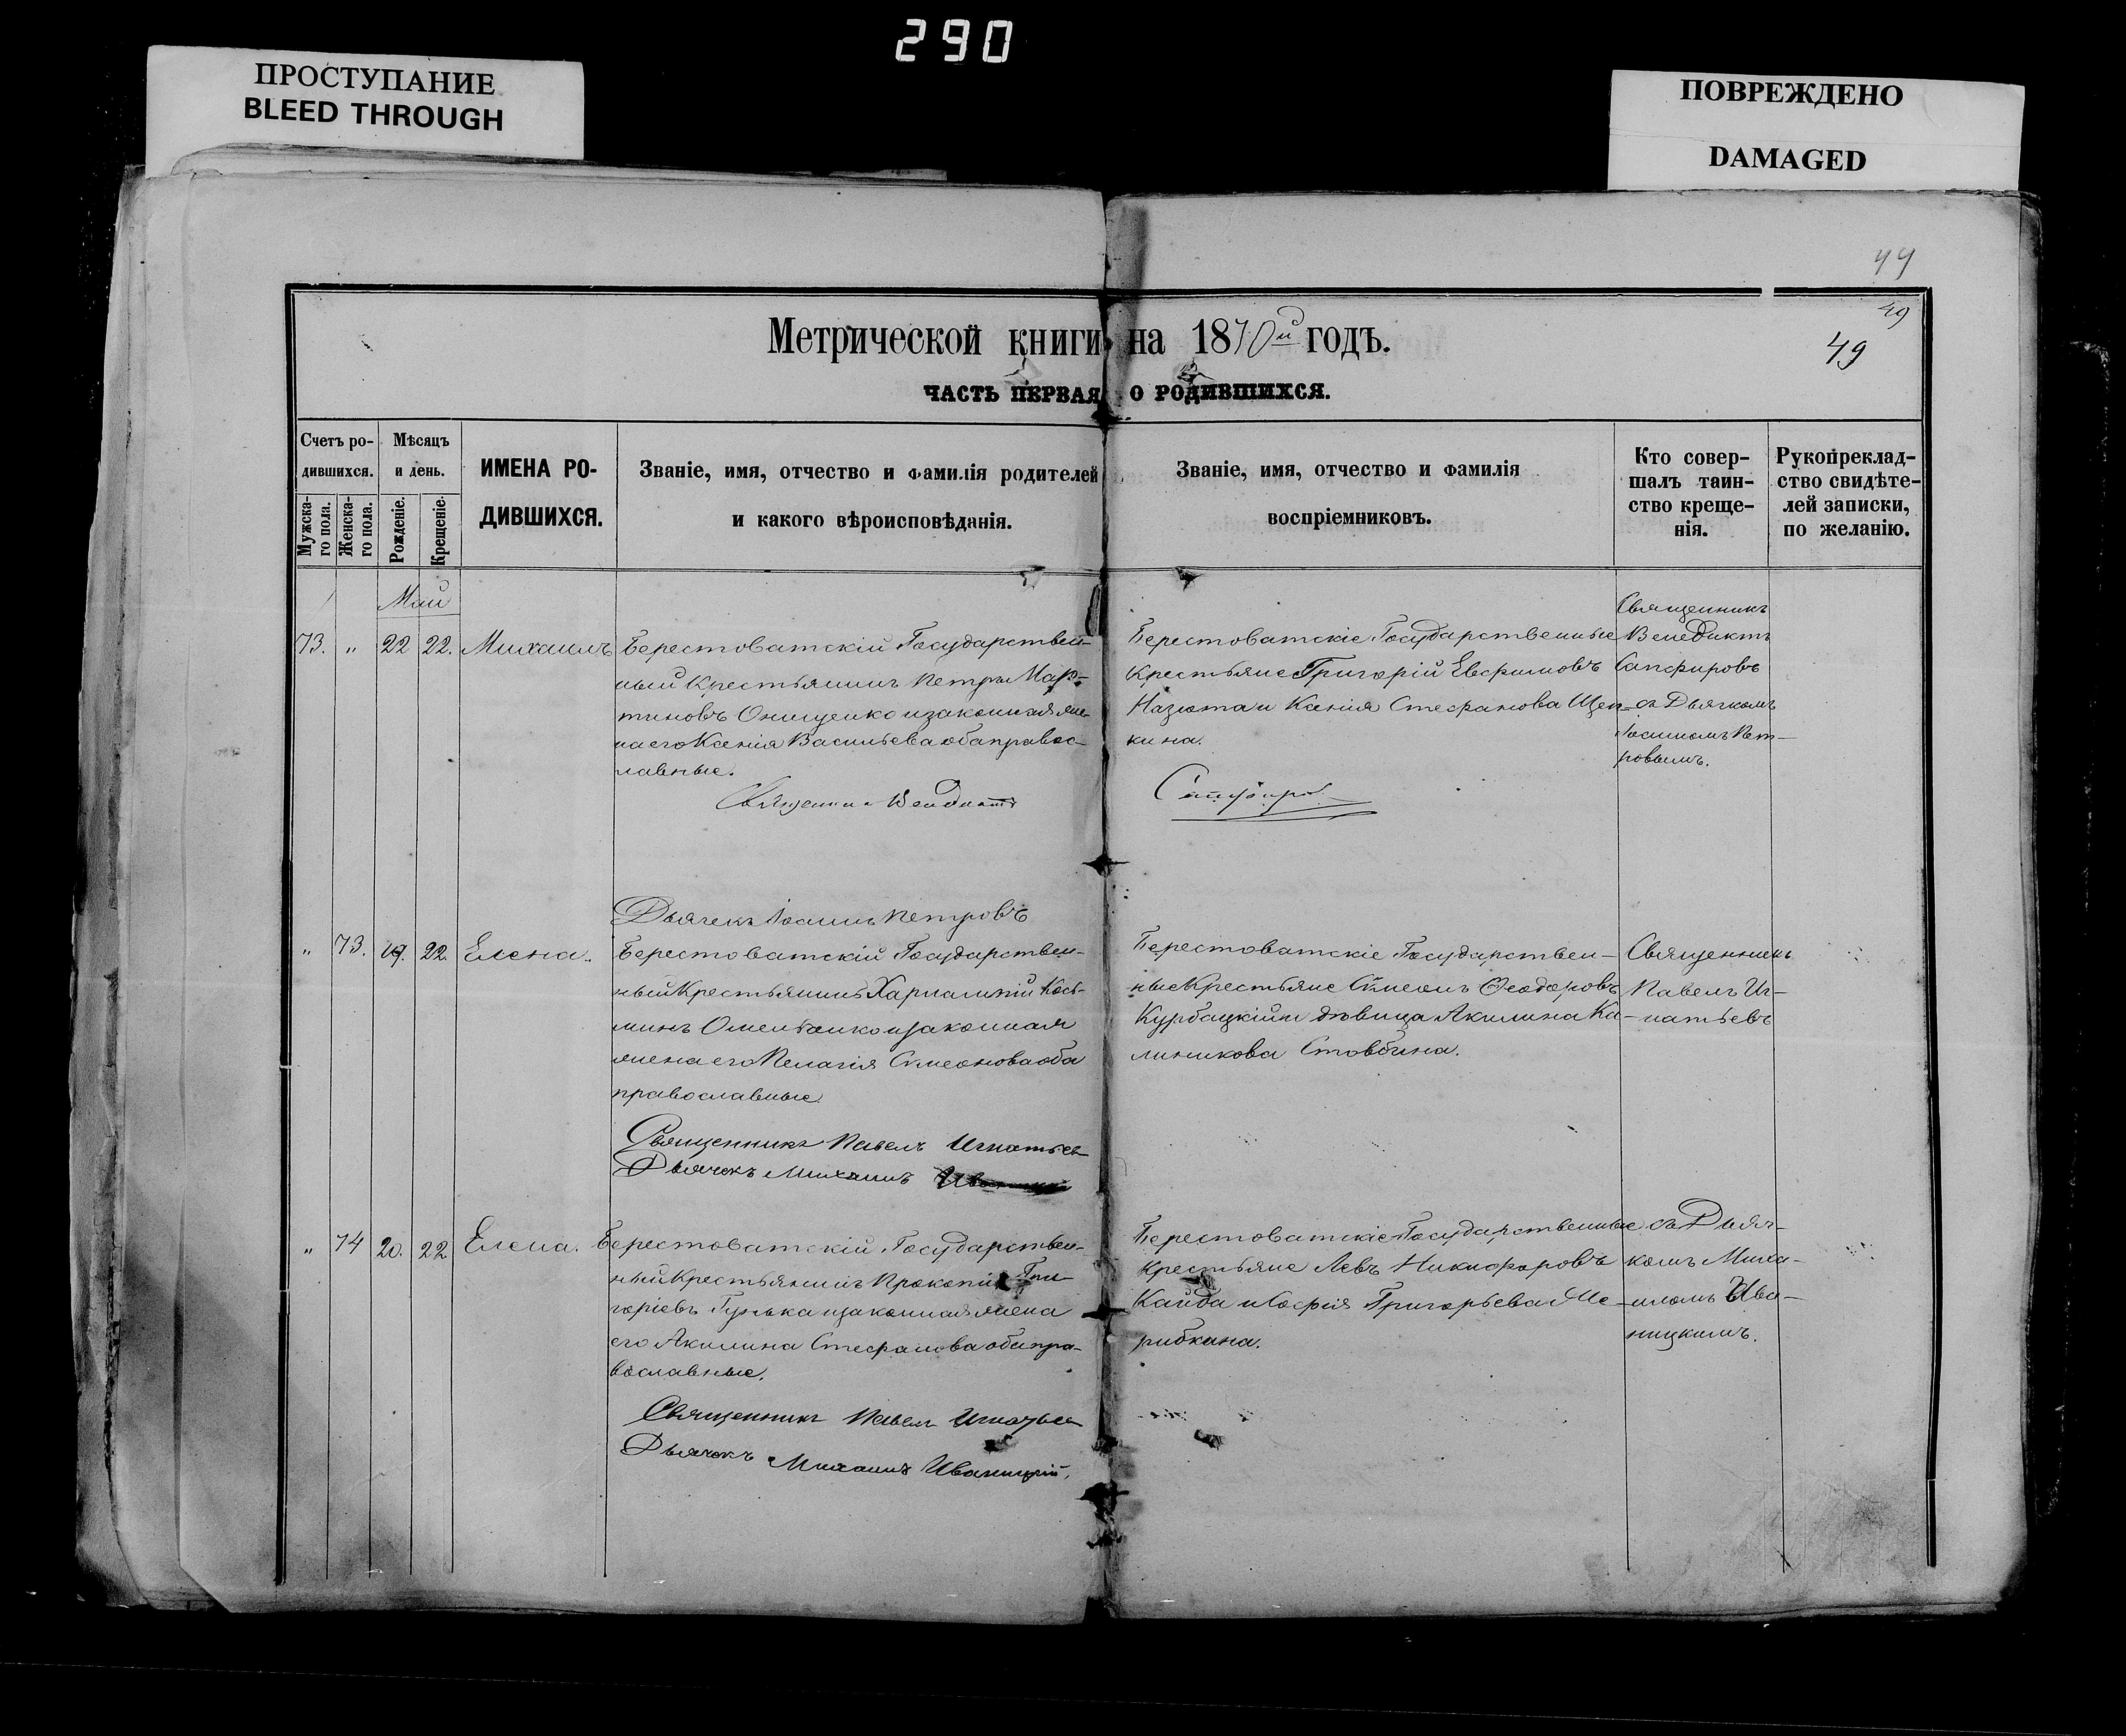 290
ПРОСТУПАНИЕ
BLEED THROUGH
ПОВРЕЖДЕНО
DAMAGED
49
49
49
Метрической книги на 1870й годъ.
ЧАСТЬ ПЕРВАЯ О РОДИВШИХСЯ.
Счетъ ро-
дившихся.
Мужска-
го пола.
Женска-
го пола.
Мѣсяцъ
и день.
Рожденіе.
Крещеніе.
ИМЕНА РО-
ДИВШИХСЯ.
Званіе, имя, отчество и фамилія родителей
и какого вѣроисповѣданія.
Званіе, имя, отчество и фамилія
воспріемниковъ.
Кто совер-
шалъ таин-
ство креще-
нія.
Рукопреклад-
ство свидѣте-
лей записки,
по желанію.
Май
73. " 22 22. Михаилъ
Берестоватскій Государствен-
ный Крестьянинъ Петръ Мар-
тиновъ Онищенко и законная же-
на его Ксенія Васильева оба правос-
лавные.
Священникъ Венедиктъ
Сапфировъ
Дьячекъ Іоаннъ Петровъ
Берестоватскіе Государственные
Крестьяне Григорій Евфимовъ
Назюта и Ксенія Стефанова Щеп-
кина.
Священникъ
Венедиктъ
Сапфировъ
съ Дьячкомъ
Іоанномъ Пет-
ровымъ.
" 73. 19. 22. Елена.
Берестоватскій Государствен-
ный Крестьянинъ Харлампій Кось-
минъ Омельянко и законная
жена его Пелагія Симеонова оба
православные.
Священникъ Павелъ Игнатьев
Дьячокъ Михаилъ
Берестоватскіе Государствен-
ные Крестьяне Симеонъ Ѳеодоровъ
Курбацкій и дѣвица Акилина Ка-
линикова Стовбина.
Священникъ
Павелъ Иг-
натьевъ
" 74 20. 22 Елена.
Берестоватскій Государствен-
ный Крестьянинъ Прокопій Гри-
горіевъ Гунька и законная жена
его Акилина Стефанова оба пра-
вославные.
Священникъ Павелъ Игнатьев
Дьячокъ Михаилъ Иваницкій.
Берестоватскіе Государственные
Крестьяне Левъ Никифоровъ
Кайда и Софія Григорьева Ме-
рибкина.
съ Дьяч-
комъ Миха-
иломъ Ива-
ницкимъ.